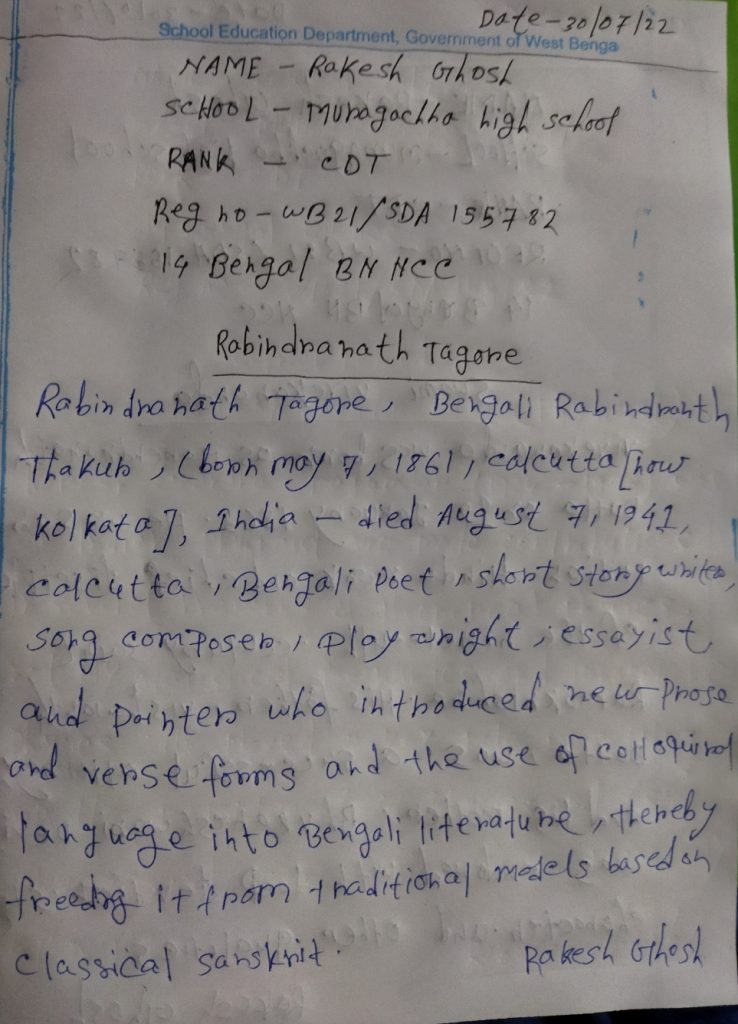 Date-30/07/22
School Education Department, Government of West Benga
NAME - Rakesh Ghosh
SCHOOL - Muragachha high school
RANK - CDT
Reg no - WB21/SDA 155782
14 Bengal BN NCC
Rabindranath Tagore
Rabindranath Tagore, Bengali Rabindranth
Thakur, (born may 7, 1861, calcutta [now
kolkata], India - died August 7, 1941,
calcutta, Bengali Poet, short story writer,
song composer, play wright, essayist,
and painter who introduced new prose
and verse forms and the use of colloquial
language into Bengali literature, thereby
freeding it from traditional models based on
classical sanskrit.
Rakesh Ghosh